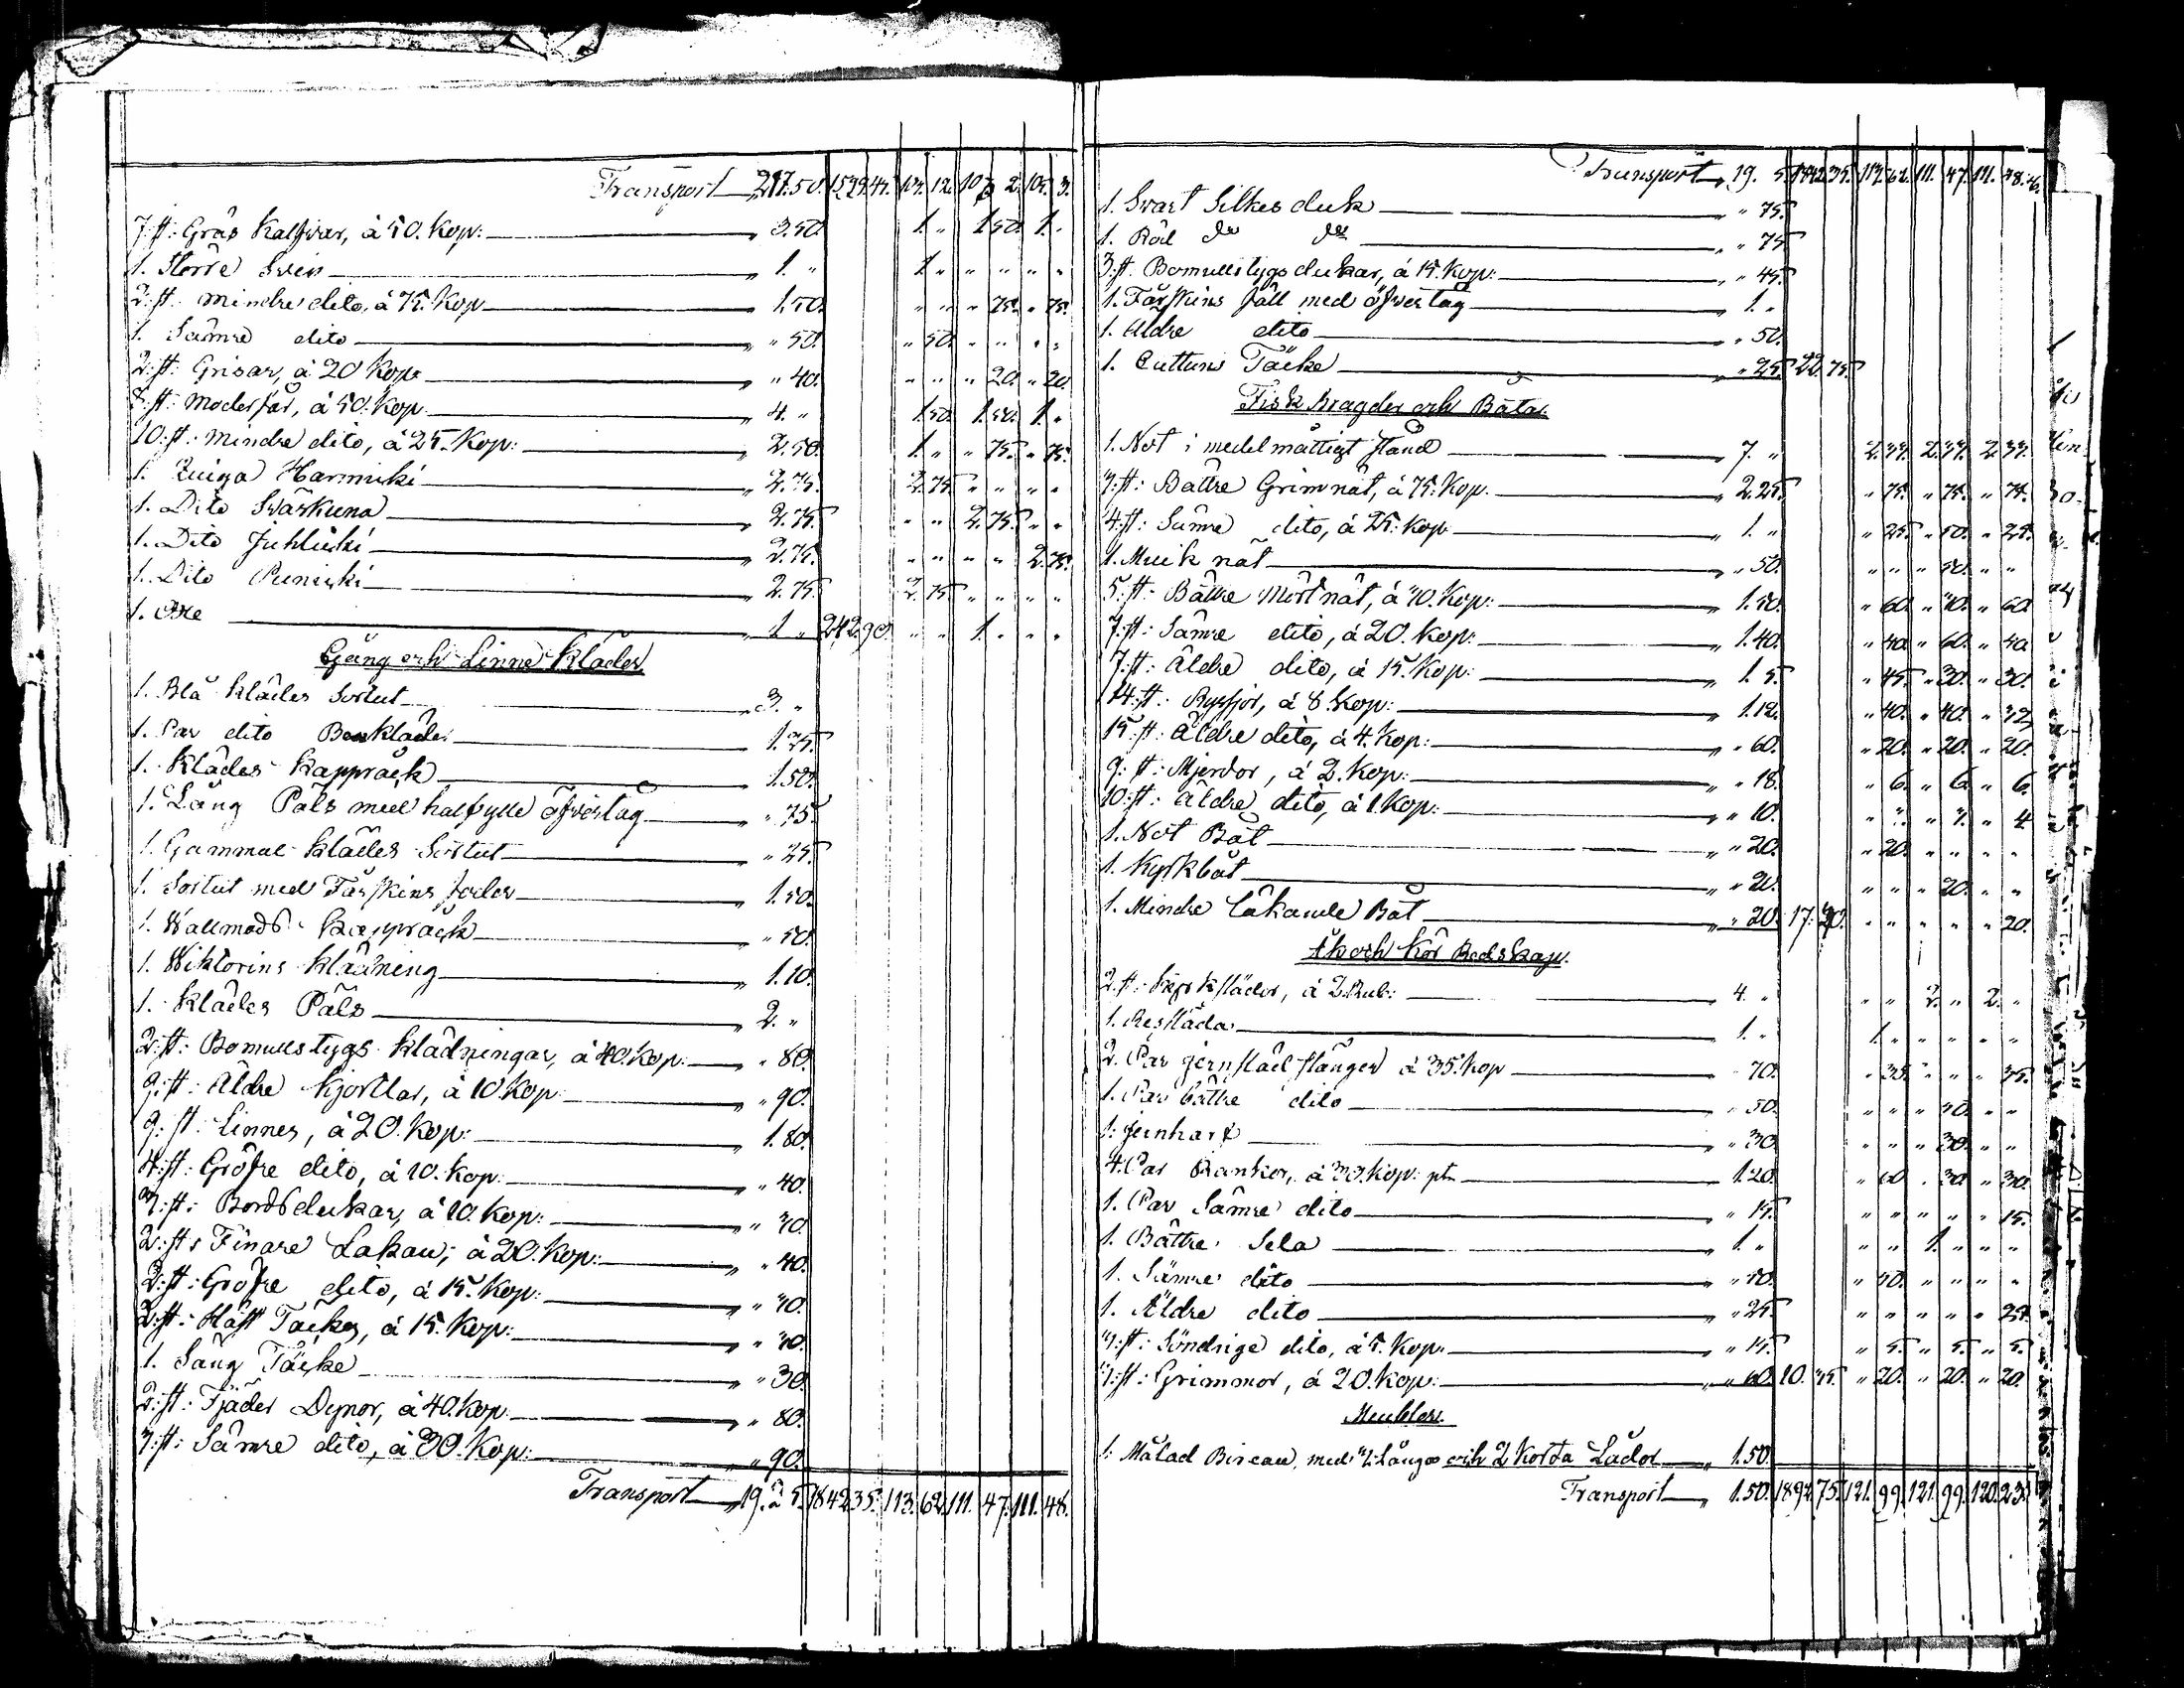 Transport 217.50. 1599.45. 107. 12. 107. 2. 105. 3.
7. st: Gräs Kalfvar, à 50. Kop: 3.50. 1. " 1 50. 1. "
1. Större Svin 1. " 1. " " " " "
2. st: mindre dito, à 75. Kop 1.50. " " " 75. " 75.
1. Sämre dito " 50. " 50. " " " "
2. st: Grisar, à 20 Kop: " 40. " " " 20. " 20.
8. st: Moderfår, à 50. Kop 4. " 1 50. 1 50. 1. "
10. st: mindre dito, à 25. Kop: 2.50. 1. " " 75. " 75.
1. Quiga Harmiki 2.75. 2.75. " " " "
1. Dito Swärkuna 2.75. " " 2.75. " "
1. Dito Juhliki 2.75. " " " " 2.75.
1. Dito Puniki 2.75. 2.75 " " " "
1. Oxe 1 " 242.90. " " 1. " " "
Gång och Linne Kläder
1. Blå Klädes Sortut 3. "
1. Par dito Benkläder 1.25.
1. Klädes Kappråck 1.50.
1. Lång Päls med halfylle öfvertag " 75.
1. Gammal Klädes Sortut " 25.
1. Sortut med Fårskins foder 1.50.
1. Wallmads Kappråck " 50.
1. Wiktorins Klädning 1.10.
1. Klädes Päls 2. "
2. st: Bomullstygs Klädningar, à 40. Kop: " 80.
9. st: Äldre Kjortlar, à 10. Kop: " 90.
9. st: Linnes, à 20. Kop: 1.80.
4. st: Gröfre dito, à 10. Kop: " 40.
3. st: Bordsdukar, à 10. Kop: " 30.
2. st: Finare Lakan, à 20. Kop: " 40.
2. st: Gröfre dito, à 15. Kop: " 30.
2. st: Häst Täcken, à 15. Kop: " 30.
1. Säng Täcke " 30.
2. st: Fjäder Dynor, à 40. Kop " 80.
3. st: Sämre dito, à 30. Kop: " 90.
Transport 19. 5. 1842 35. 113. 62. 111. 47. 111. 48.
Transport 19. 5. 1842 35. 113. 62. 111. 47. 111. 48.
1. Svart Silkes duk " 75.
1. Röd do do " 75
3. st. Bomullstygs dukar, à 15. Kop: " 45.
1. Fårskins fäll med öfvertag 1. "
1. Äldre dito " 50.
1. Cuttuns Täcke " 25. 22. 75.
Fisk bragder och Båtar
1. Not i medelmåttigt stånd 7. " 2.33. 2.33. 2.33.
3. st: Bättre Grimnät, à 75. Kop. 2.25. " 75. " 75. " 75.
4. st: Sämre dito, à 25. Kop 1. " " 25. " 50. " 25.
1. Muik nät " 50. " " " 50. " "
5. st: Bättre Mörtnät, à 30. Kop: 1.50. " 60. " 30. " 60
7. st: Sämre dito, à 20. Kop: 1.40. " 40 " 60. " 40
7. st: Äldre dito, à 15. Kop: 1. 5. " 45. " 30. " 30.
14. st: Ryssjor, à 8. Kop: 1.12. " 40. " 40. " 32
15. st. Äldre dito, à 4. Kop: " 60. " 20. " 20. " 20.
9. st: Mjerdor, à 2. Kop: " 18. " 6. " 6. " 6.
10. st: Äldre dito, à 1. Kop: " 10. " 3. " 3. " 4
1. Not Båt " 20. " 20. " " " "
1. Kyrkbåt " 20. " " " 20. " "
1. Mindre läkande Båt " 20. 17. 30. " " " " " 20.
Åk och Kör Redskap
2. st: Kyrkslädor, à 2. Rub: 4. " " " 2. " 2. "
1. Resslåda 1. " 1. " " " " "
2. Par jernslädstänger à 35. Kop " 70. " 35. " " " 35.
1. Par bättre dito " 50. " " " 50. " "
1. jernharf " 30. " " " 30. " "
4. Par Rankor, à 30. Kop: pr. 1.20. " 60 " 30. " 30.
1. Par Sämre dito " 15. " " " " " 15.
1. Bättre Sela 1. " " " 1. " " "
1. Sämre dito " 50. " 50. " " " "
1. Äldre dito " 25. " " " " " 25.
3. st: Söndrige dito, à 5. Kop: " 15. " 5. " 5. " 5.
3. st: Grimmor, à 20. Kop: " 60. 10. 35. " 20. " 20. " 20.
Meubler.
1. Målad Bireau, med 2. långa och 2 korta Lådor 1.50.
Transport 1.50. 1892. 75. 121. 99. 121. 99. 120. 23.